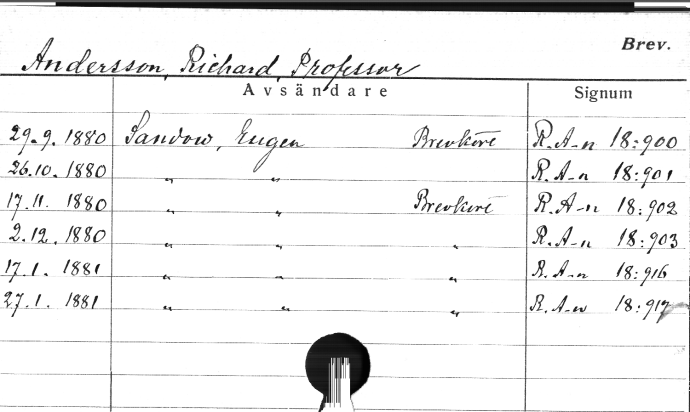 Brev.
Andersson, Richard, Professor
Avsändare Signum
29.9. 1880 Sandow, Eugen Brevkort R.A-n 18:900
26.10. 1880 " " R.A-n 18:901
17.11. 1880 " " Brevkort R.A-n 18:902
2.12. 1880 " " " R.A-n 18:903
17.1. 1881 " " " R.A-n 18:916
27.1. 1881 " " " R.A-n 18:917